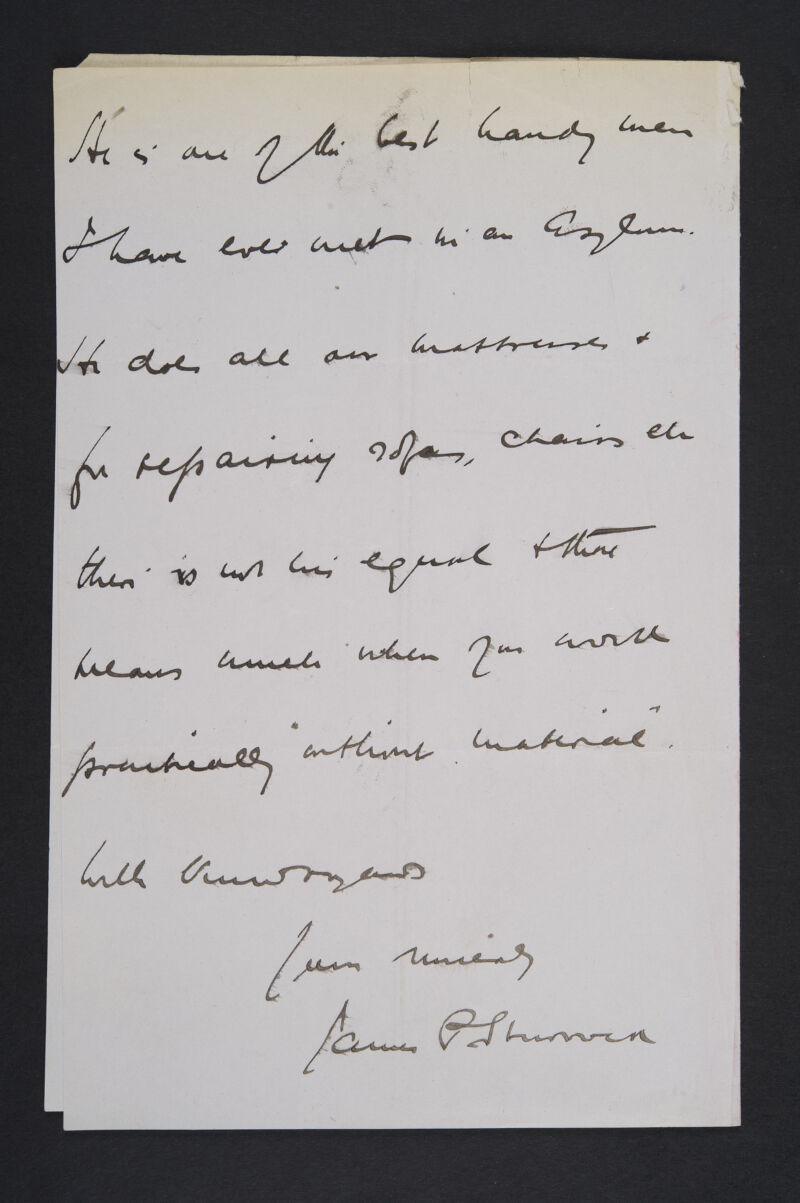 He is one of the best handy men
I have ever met in an Asylum.
He does all our mattresses &
for repairing sofas, chairs etc
there is not his equal & that
means much when you work
practically "without material".
With kind regards
Yours sincerely
James P Sturrock